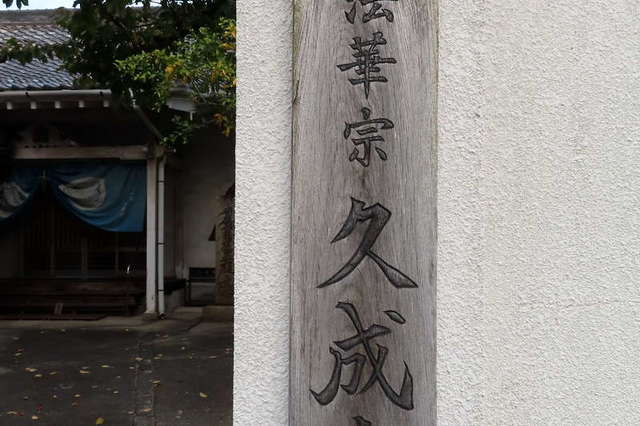 法華宗久成